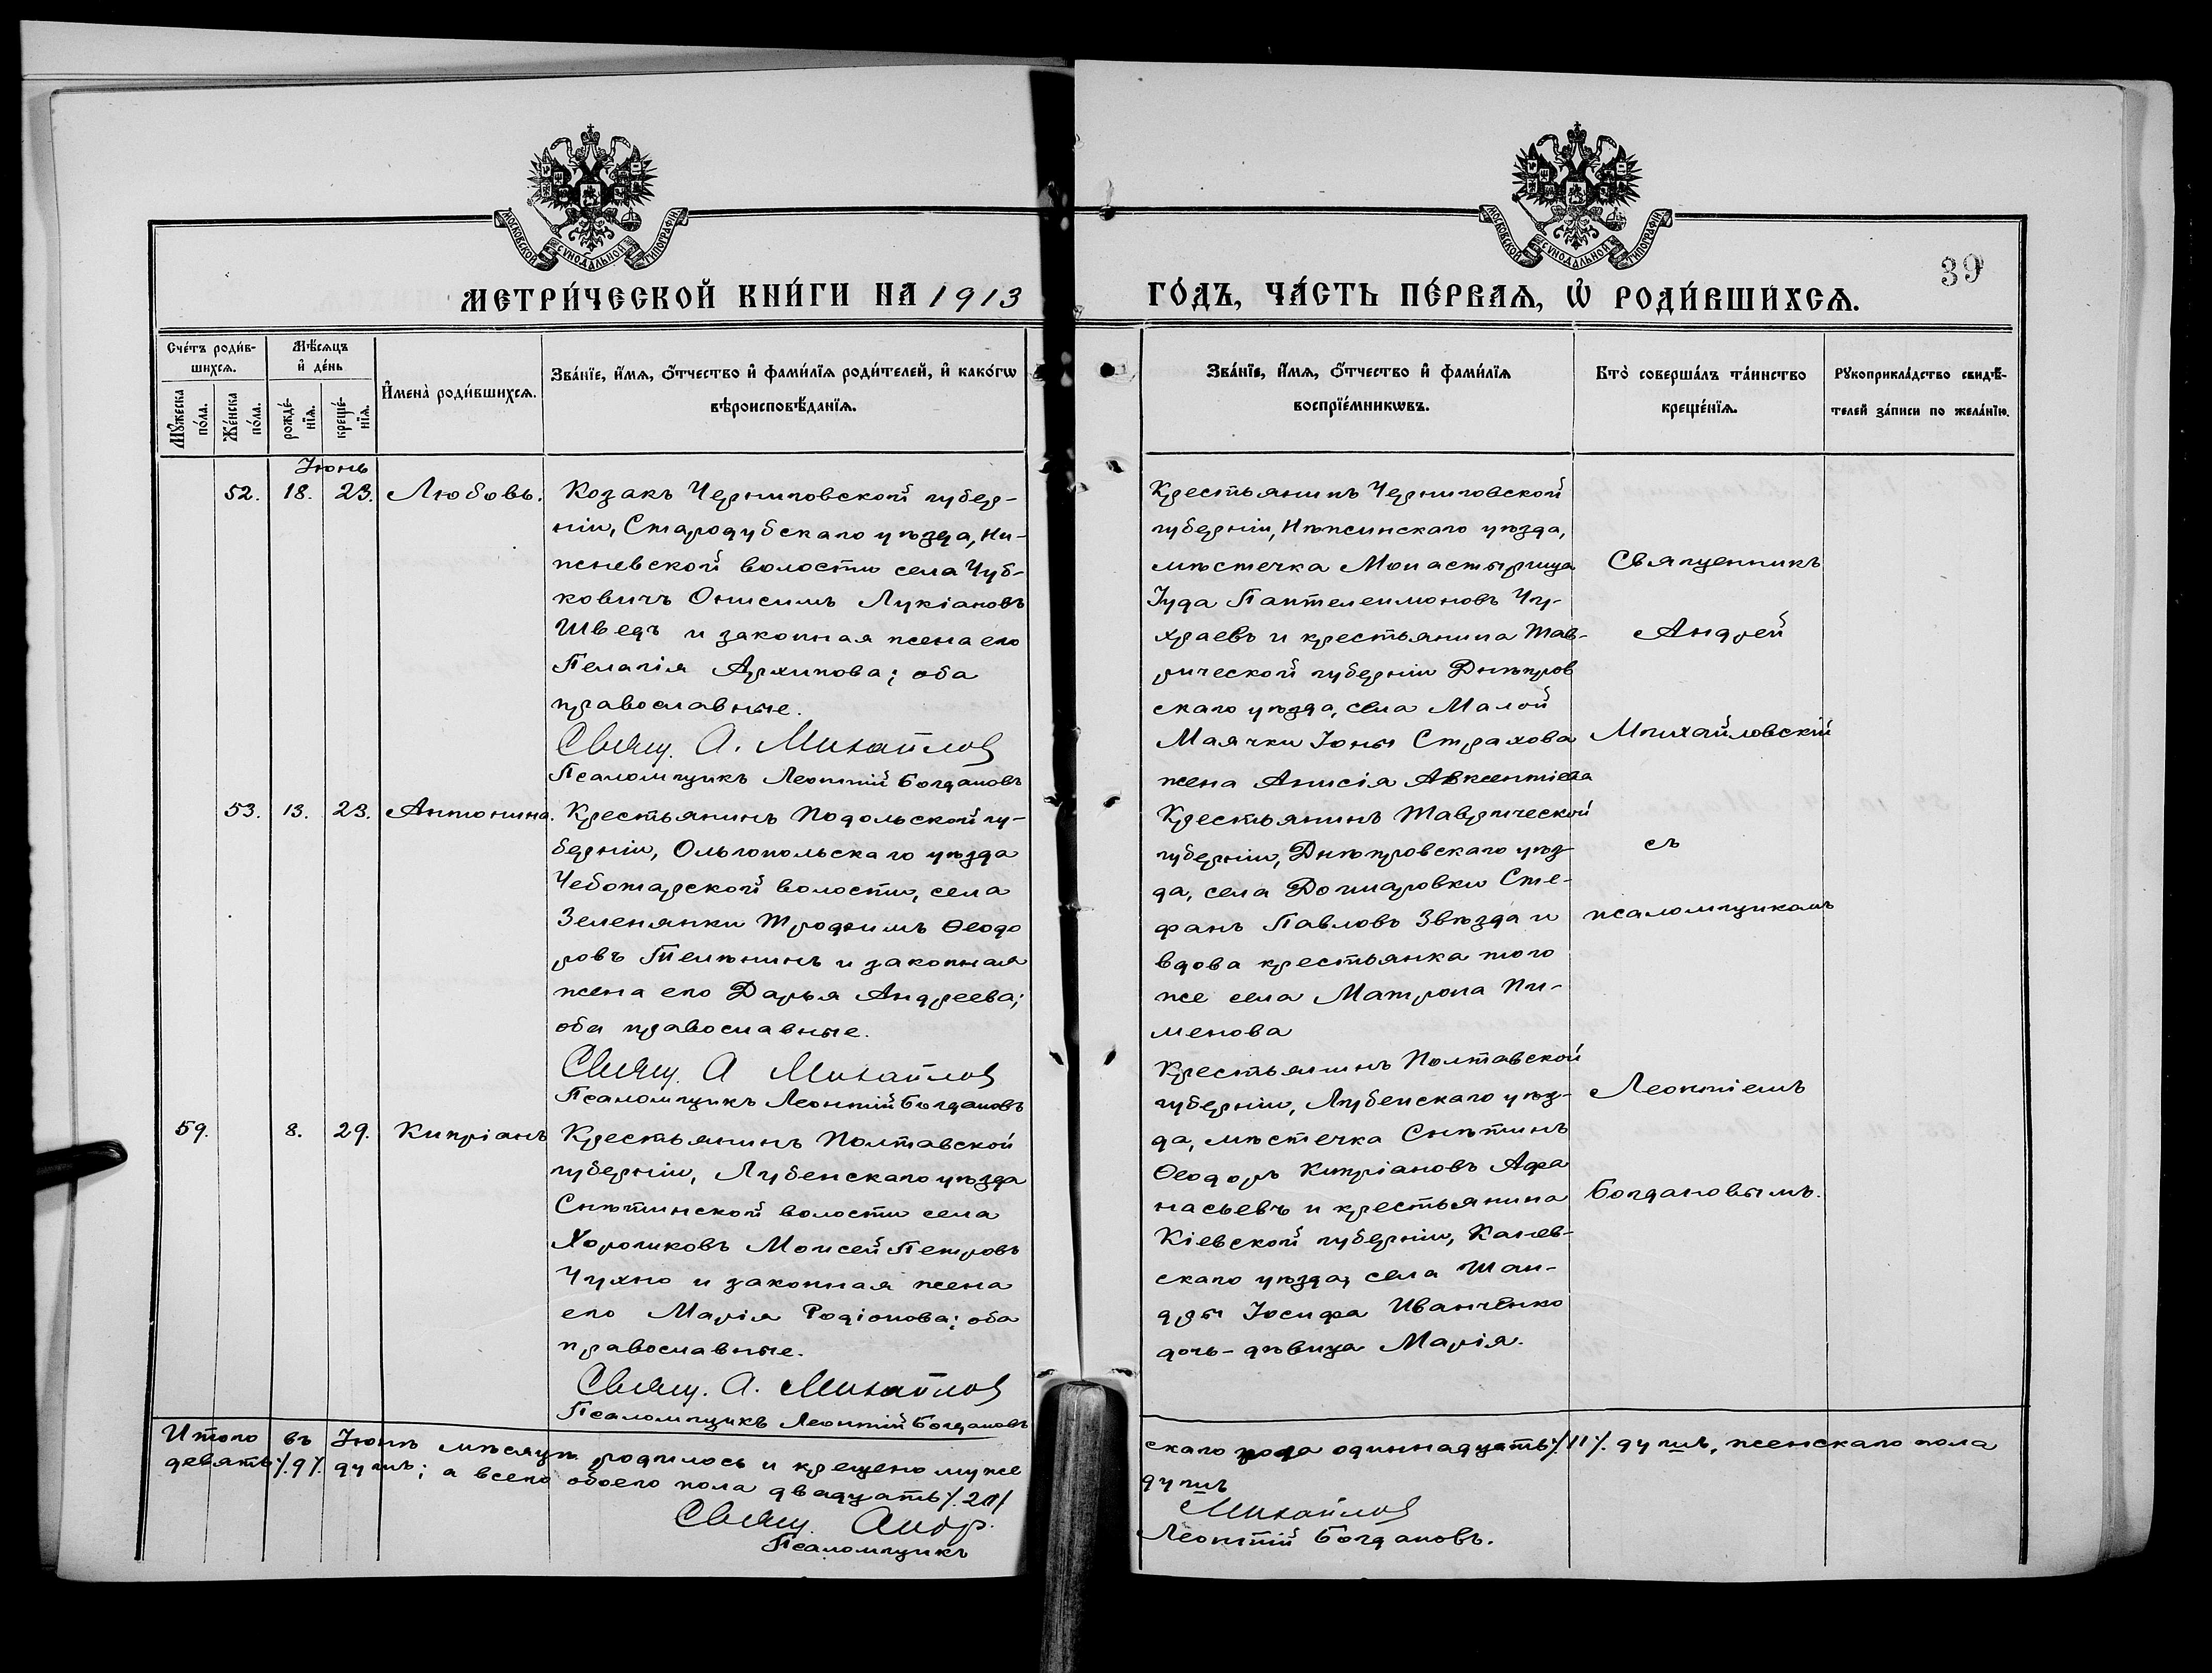 МОСКОВСКОЙ СУНОДАЛЬНОЙ ТИПОГРАФІИ
МОСКОВСКОЙ СУНОДАЛЬНОЙ ТИПОГРАФІИ
39
МЕТРИ́ЧЕСКОЙ КНИ́ГИ НА 1913
ГО́ДЪ, ЧА́СТЬ ПЕ́РВАѦ, Ѡ҆ РОДИ́ВШИХСѦ.
Сче́тъ роди́в-
шихсѧ.
Мꙋжеска
по́ла.
Же́нска
по́ла.
Мѣ́сѧцъ
и҆ де́нь
рожде́-
нїѧ.
креще́-
нїѧ.
И҆мена̀ роди́вшихсѧ.
Зва́нїе, и҆́мѧ, ѻ҆́тчество и҆ фами́лїѧ роди́телей, и҆ како́гѡ
вѣроисповѣ́данїѧ.
Зва́нїе, и҆́мѧ, ѻ҆́тчество и҆ фами́лїѧ
воспрїе́мникѡвъ.
Кто̀ соверша́лъ та́инство
креще́нїѧ.
Рꙋкоприкла́дство свидѣ́-
телей за́писи по жела́нїю.
Іюнь
52. 18. 23. Любовь.
Козакъ Черниговской губер-
ніи, Стародубскаго уѣзда,
волости села Чуб-
ковичъ Онисимъ Лукіановъ
Шведъ и законная жена его
Пелагія Архипова; оба
православные.
Свящ. А. Михайлов
Псаломщикъ Леонтій Богдановъ
Крестьянинъ Черниговской
губерніи, Нѣжинскаго уѣзда,
мѣстечка Монастырища
Іуда Пантелеимоновъ Чу-
храевъ и крестьянина Тав-
рической губерніи Днѣпров
скаго уѣзда, села Малой
Маячки Іоны Страхова
жена Анисія Авксентіева
53. 13. 23. Антонина.
Крестьянинъ Подольской гу-
берніи, Ольгопольскаго уѣзда
Чеботарской волости, села
Зеленянки Трофимъ Ѳеодо
ровъ и законная
жена его Дарья Андреева;
оба православные.
Свящ. А Михайлов
Псаломщикъ Леонтій Богдановъ
Крестьянинъ Таврической
губерніи, Днѣпровскаго уѣз-
да, села Догмаровки Сте-
фанъ Павловъ Звѣзда и
вдова крестьянка того
же села Матрона Пи-
менова
59. 8. 29. Кипріанъ
Крестьянинъ Полтавской
губерніи, Лубенскаго уѣзда
Снѣтинской волости села
Хорошковъ Моисей Петровъ
Чухно и законная жена
его Марія Родіонова; оба
православные.
Свящ. А. Михайлов
Псаломщикъ Леонтій Богдановъ
Крестьянинъ Полтавской
губерніи, Лубенскаго уѣз-
да, мѣстечка Снѣтинъ
Ѳеодоръ Кипріановъ Афа
насьевъ и крестьянина
Кіевской губерніи, Канев-
скаго уѣзда, села Шан-
дры Іосифа Иванченко
дочь-дѣвица Марія.
Священникъ
Андрей
Михайловскій
съ
псаломщикомъ
Леонтіемъ
Богдановымъ.
Итого въ Іюнѣ мѣсяцѣ родилось и крещено муже
скаго пола одиннадцать /.11/. душъ, женскаго пола
девять /.9/. душъ; а всего обоего пола двадцать /.20/
душъ
Свящ. Андр.
Михайлов
Псаломщикъ
Леонтій Богдановъ.